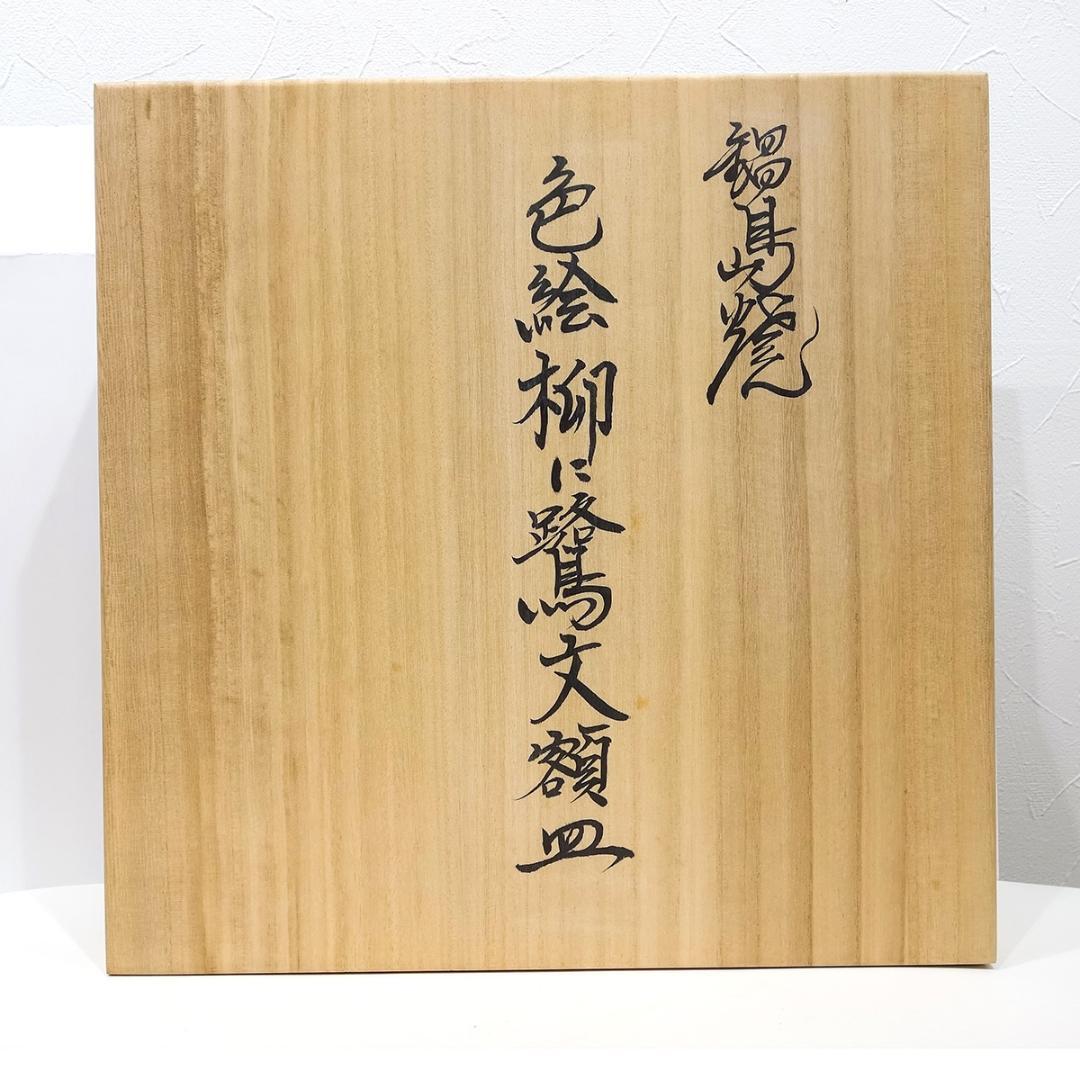 鍋島焼
色絵柳に鷺文額皿